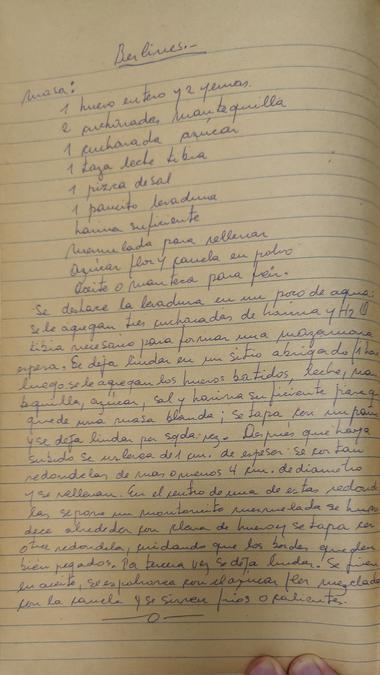 Berlines.-
Masa:
1 huevo entero y 2 yemas.
2 cucharadas mantequilla
1 cucharada azúcar
1 taza leche tibia
1 pizca de sal
1 pancito levadura
harina suficiente
Mermelada para rellenar
Azúcar flor y canela en polvo
Aceite o manteca para freír.
Se deshace la levadura en un poco de agua;
se le agregan tres cucharadas de harina y H2O
tibia necesario para formar una mazamorra
espesa. Se deja leudar en un sitio abrigado 1 hora
luego se le agregan los huevos batidos, leche, man
tequilla, azúcar, sal y harina suficiente para q
quede una masa blanda; se tapa con un paño
y se deja leudar por sgda. vez. Después que haya
subido se uslerea de 1 cm. de espesor: se cortan
redondelas de mas o menos 4 cm. de diametro
y se rellenan. En el centro de una de estas redonde
las se pone un montoncito mermelada se hume
dece alrededor con clara de huevo y se tapa con
otra redondela, cuidando que los bordes queden
bien pegados. Por tercera vez se deja leudar. Se fríen
en aceite, se espolvorea con el azúcar flor mezclada
con la canela y se sirven fríos o calientes.